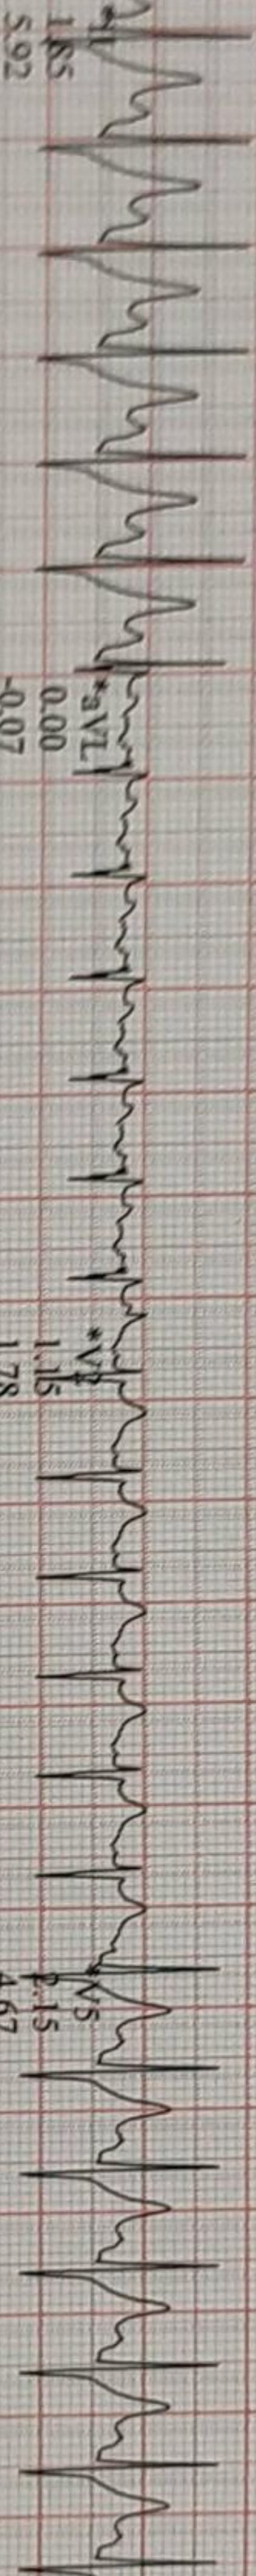 II
1.85
5.92
*aVL
0.00
-0.07
*V2
1.15
1.78
*V5
2.15
4.67